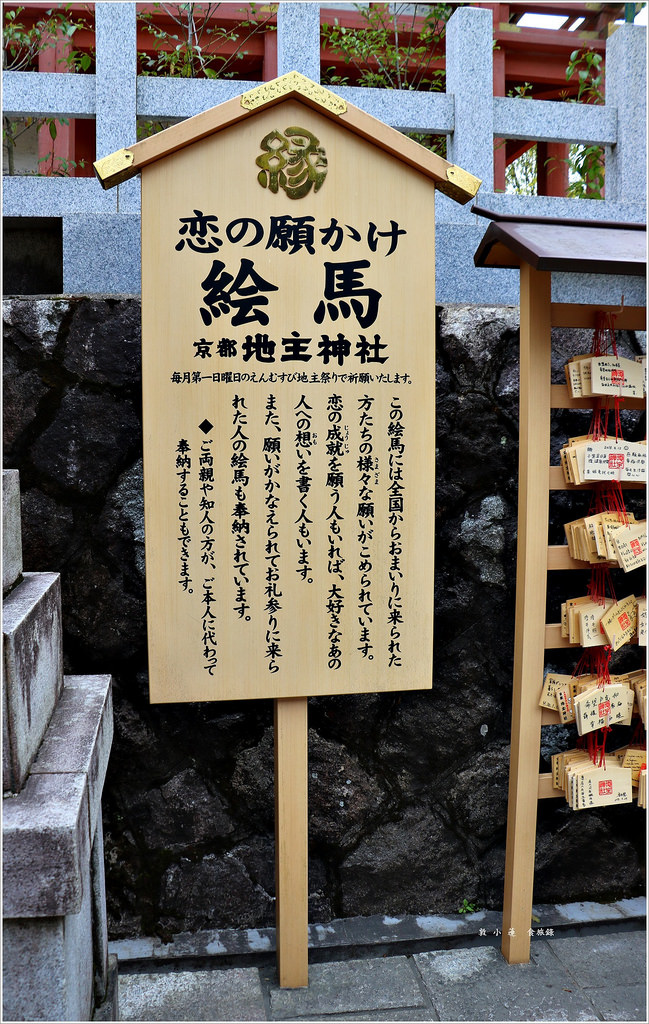 縁
恋の願かけ
絵馬
京都 地主神社
毎月第一日曜日のえんむすび地主祭りで祈願いたします。
この絵馬には全国からおまいりに来られた
方たちの様々な願いがこめられています。
恋の成就を願う人もいれば、大好きなあの
人への想いを書く人もいます。
また、願いがかなえられてお礼参りに来ら
れた人の絵馬も奉納されています。
◆ご両親や知人の方が、ご本人に代わって
奉納することもできます。
敦小蓮 食旅錄